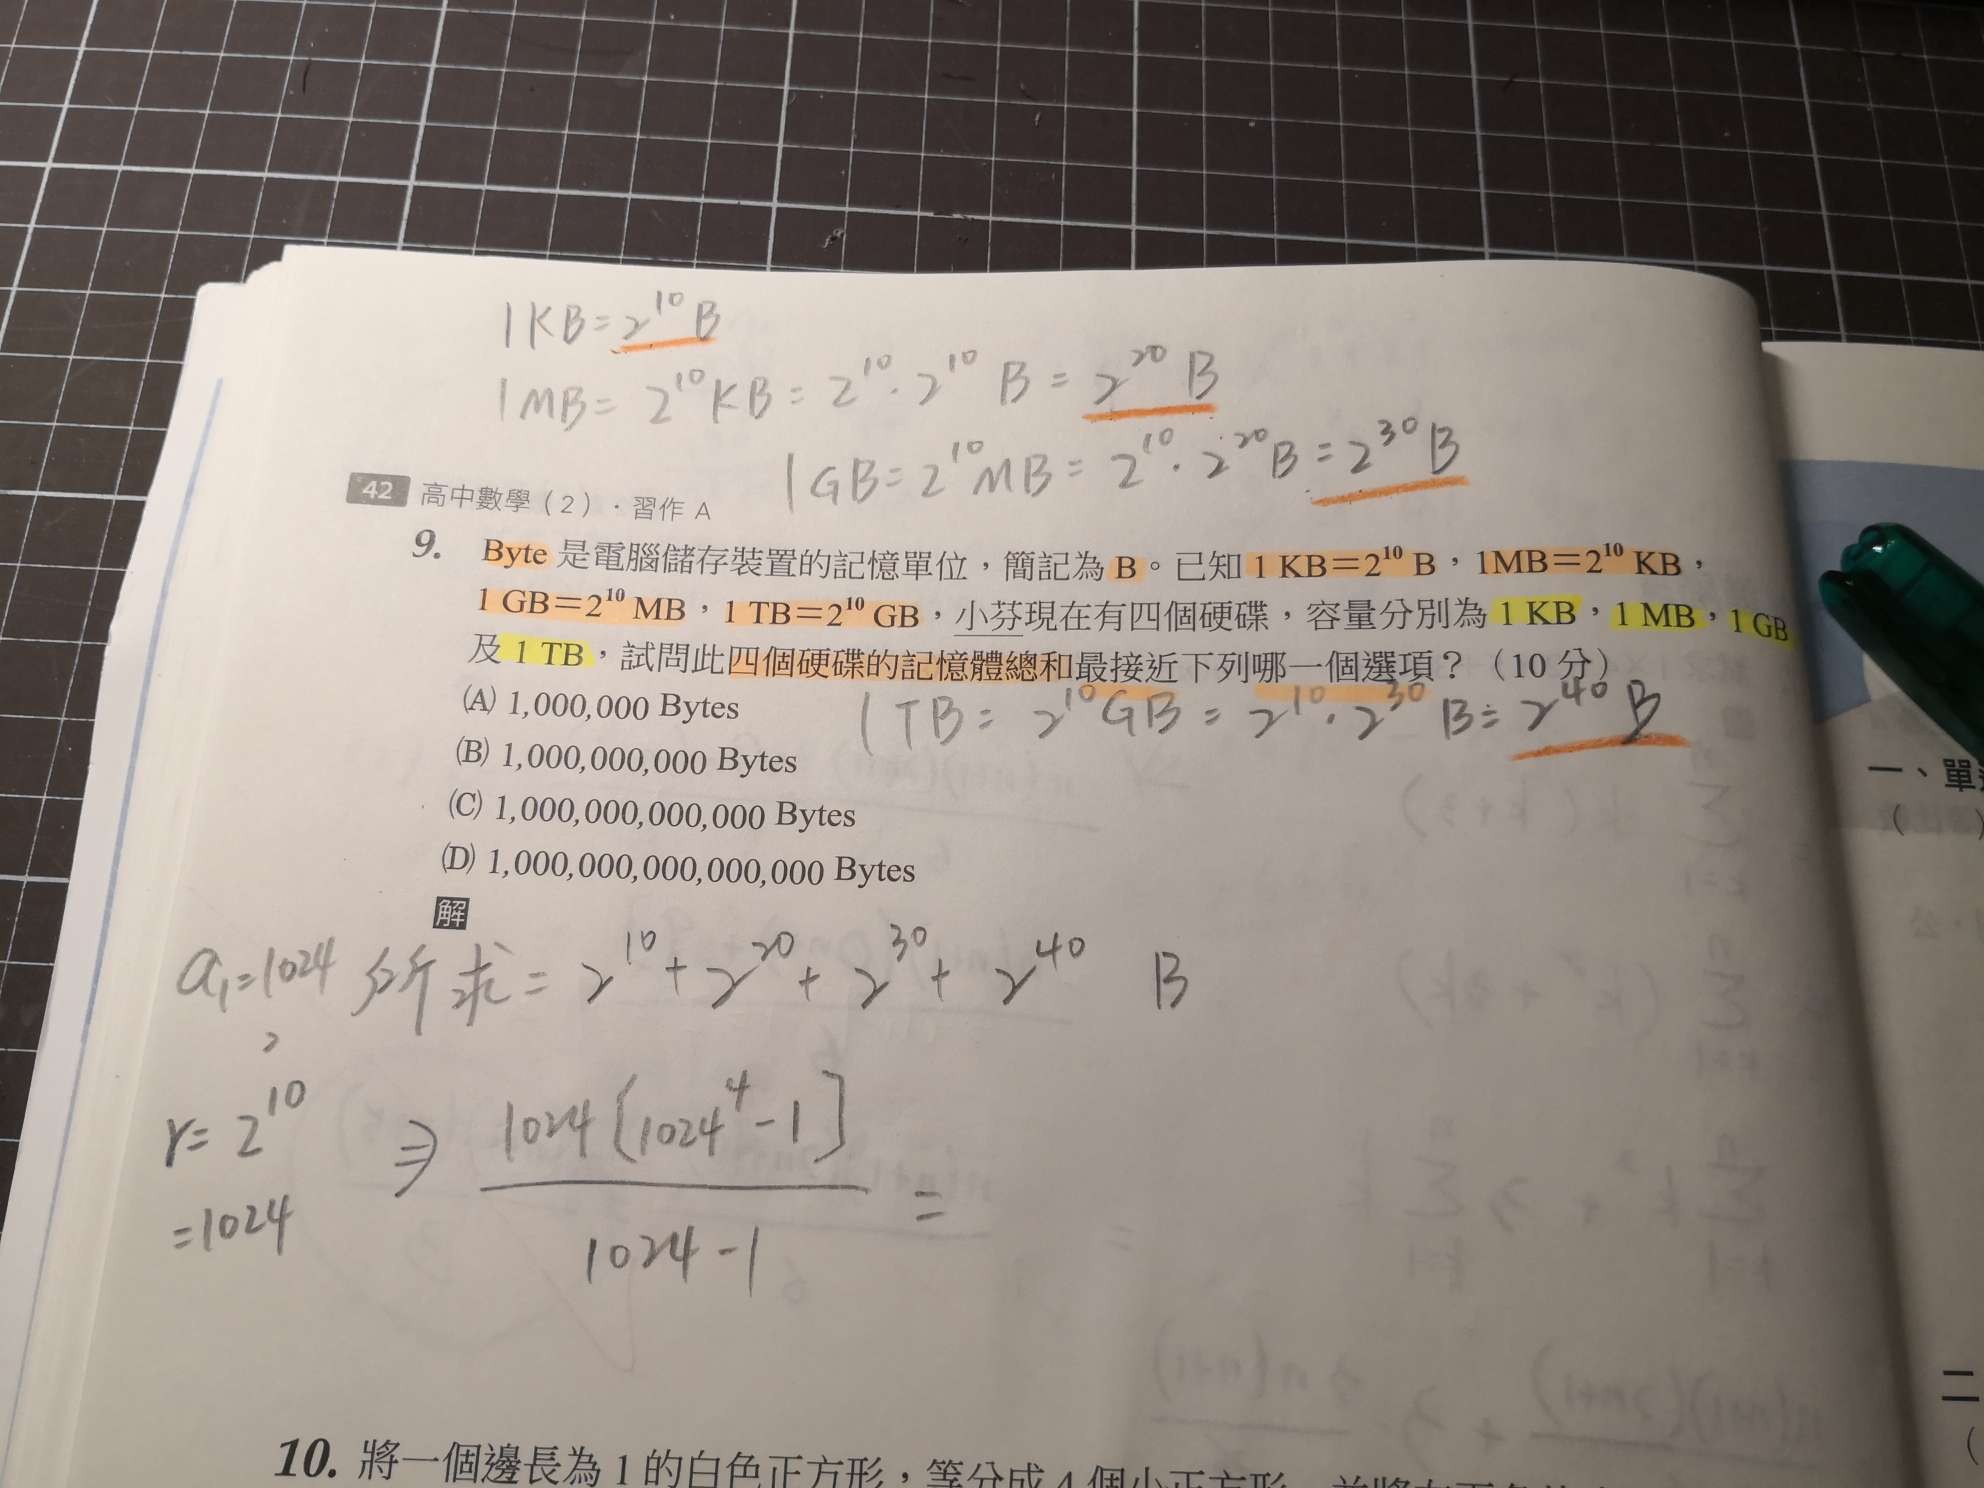 1KB=2¹⁰B
1MB=2¹⁰KB=2¹⁰·2¹⁰ B=2²⁰ B
1GB=2¹⁰MB=2¹⁰·2²⁰B=2³⁰B
42 高中數學(2)·習作 A
9. Byte 是電腦儲存裝置的記憶單位，簡記為 B。已知 1 KB=2¹⁰ B，1MB=2¹⁰ KB，
1 GB=2¹⁰ MB，1 TB=2¹⁰ GB，小芬現在有四個硬碟，容量分別為 1 KB，1 MB，1 GB
及 1 TB，試問此四個硬碟的記憶體總和最接近下列哪一個選項？（10 分）
(A) 1,000,000 Bytes
1TB=2¹⁰GB=2¹⁰·2³⁰ B=2⁴⁰B
(B) 1,000,000,000 Bytes
(C) 1,000,000,000,000 Bytes
(D) 1,000,000,000,000,000 Bytes
解
a₁=1024 所求=2¹⁰+2²⁰+2³⁰+2⁴⁰ B
,
r=2¹⁰
=1024
⇒ 1024[1024⁴-1]
1024-1
=
10. 將一個邊長為 1 的白色正方形，等分成 4 個小正方形
一、單
二